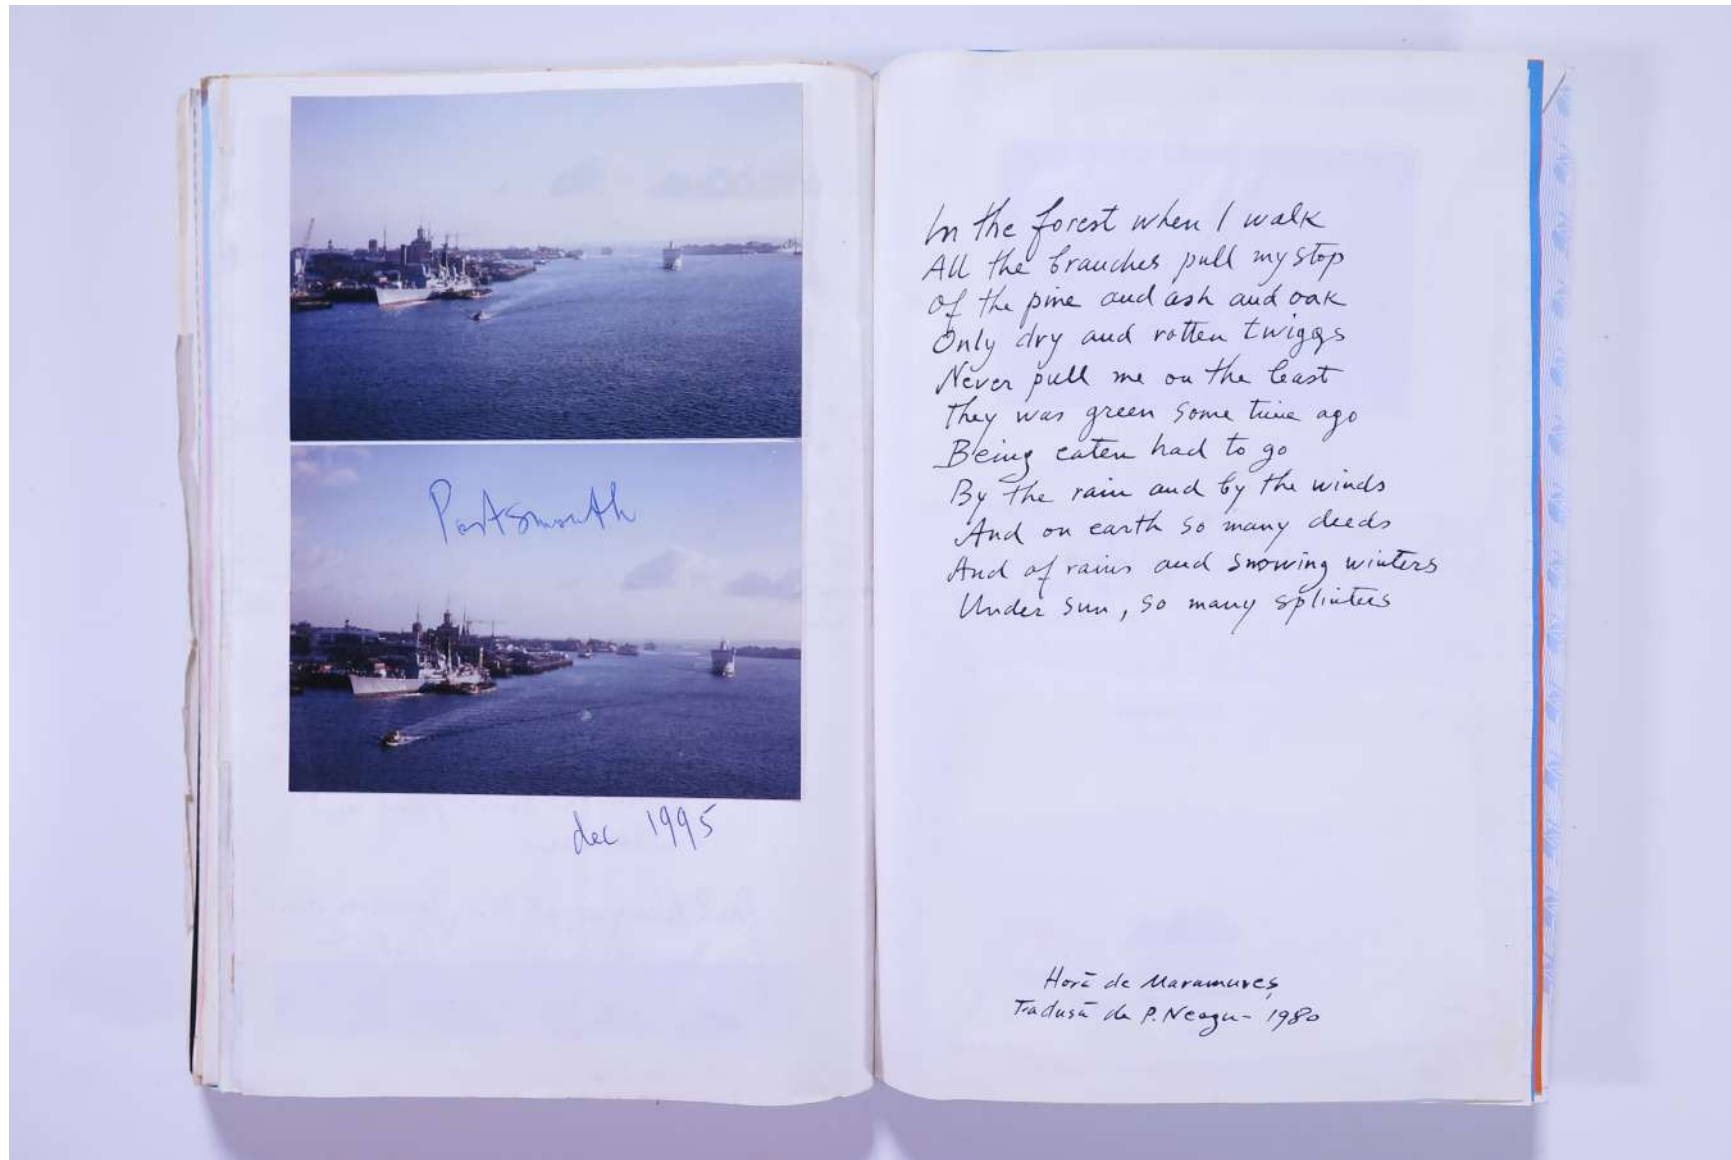 Portsmouth
dec 1995
In the forest when I walk
All the branches pull my stop
Of the pine and ash and oak
Only dry and rotten twiggs
Never pull me on the least
They was green some time ago
Being eaten had to go
By the rain and by the winds
And on earth so many deeds
And of rains and snowing winters
Under sun, so many splinters
Horă de Maramureș
Tradusă de P. Neagu - 1980